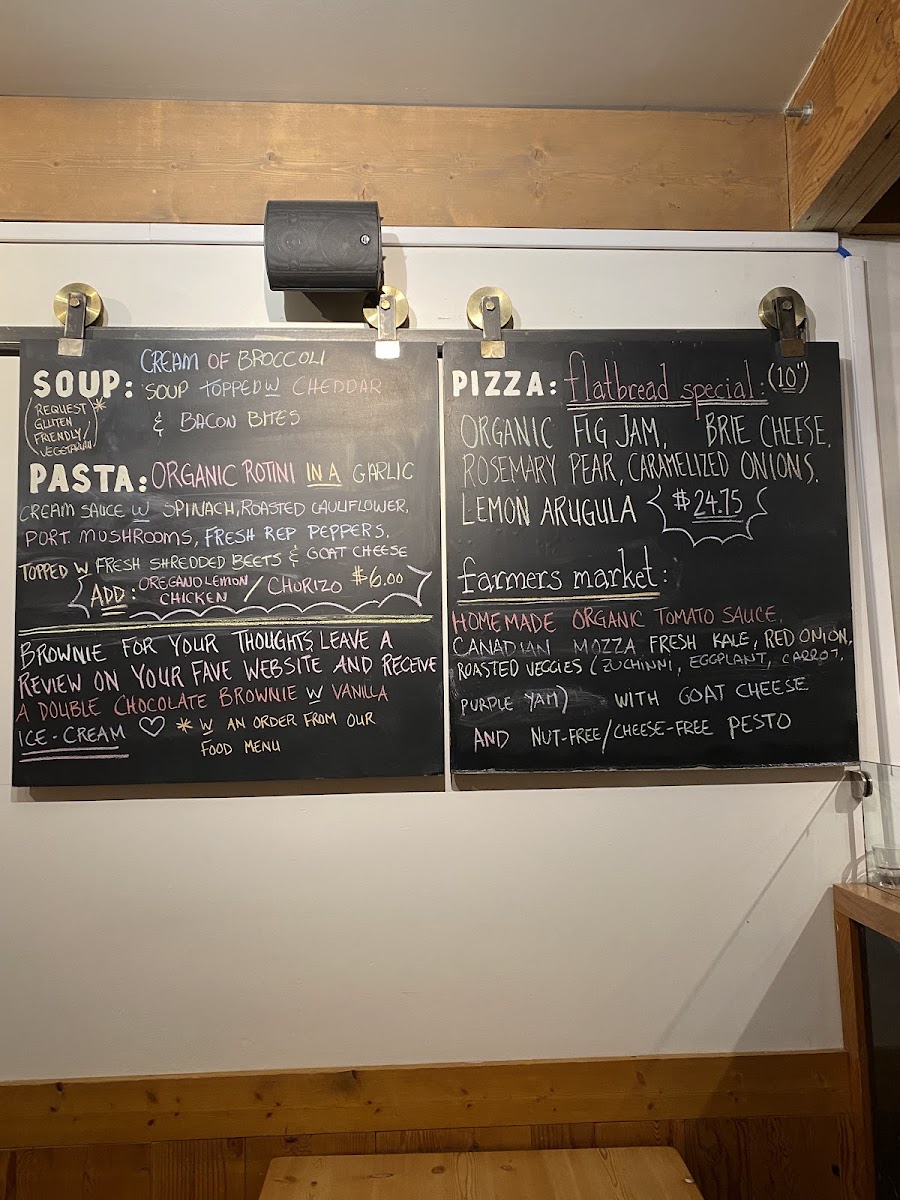 CREAM OF BROCCOLI
SOUP: SOUP TOPPED W CHEDDAR
& BACON BITES
(REQUEST *
GLUTEN
FRIENDLY/
VEGETARIAN)
PASTA: ORGANIC ROTINI IN A GARLIC
CREAM SAUCE W SPINACH, ROASTED CAULIFLOWER,
PORT MUSHROOMS, FRESH REP PEPPERS.
TOPPED W FRESH SHREDDED BEETS & GOAT CHEESE
ADD: OREGANO LEMON CHICKEN / CHORIZO $6.00
BROWNIE FOR YOUR THOUGHTS, LEAVE A
REVIEW ON YOUR FAVE WEBSITE AND RECEIVE
A DOUBLE CHOCOLATE BROWNIE W VANILLA
ICE-CREAM ♡ * W AN ORDER FROM OUR
FOOD MENU
PIZZA: flatbread special: (10")
ORGANIC FIG JAM, BRIE CHEESE,
ROSEMARY PEAR, CARAMELIZED ONIONS.
LEMON ARUGULA $24.75
farmers market:
HOMEMADE ORGANIC TOMATO SAUCE,
CANADIAN MOZZA FRESH KALE, RED ONION,
ROASTED VEGGIES (ZUCHINNI, EGGPLANT, CARROT,
PURPLE YAM) WITH GOAT CHEESE
AND NUT-FREE/CHEESE-FREE PESTO